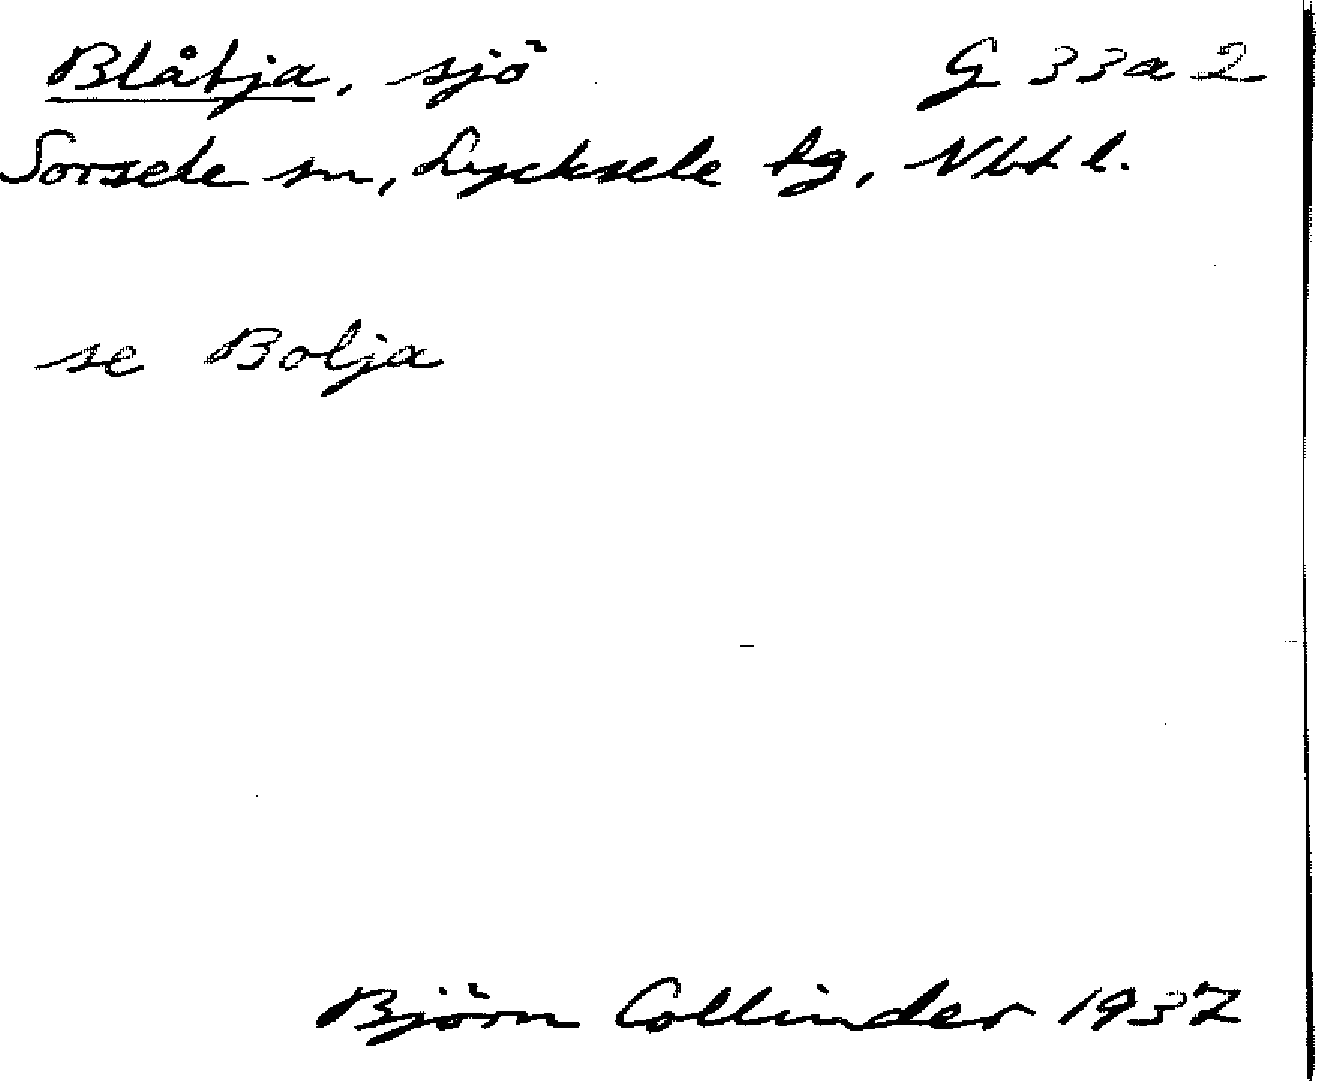 Blåtja, sjö G 33a2
Sorsele sn, Lycksele tg, Vbt l.
se Bolja
Björn Collinder 1937